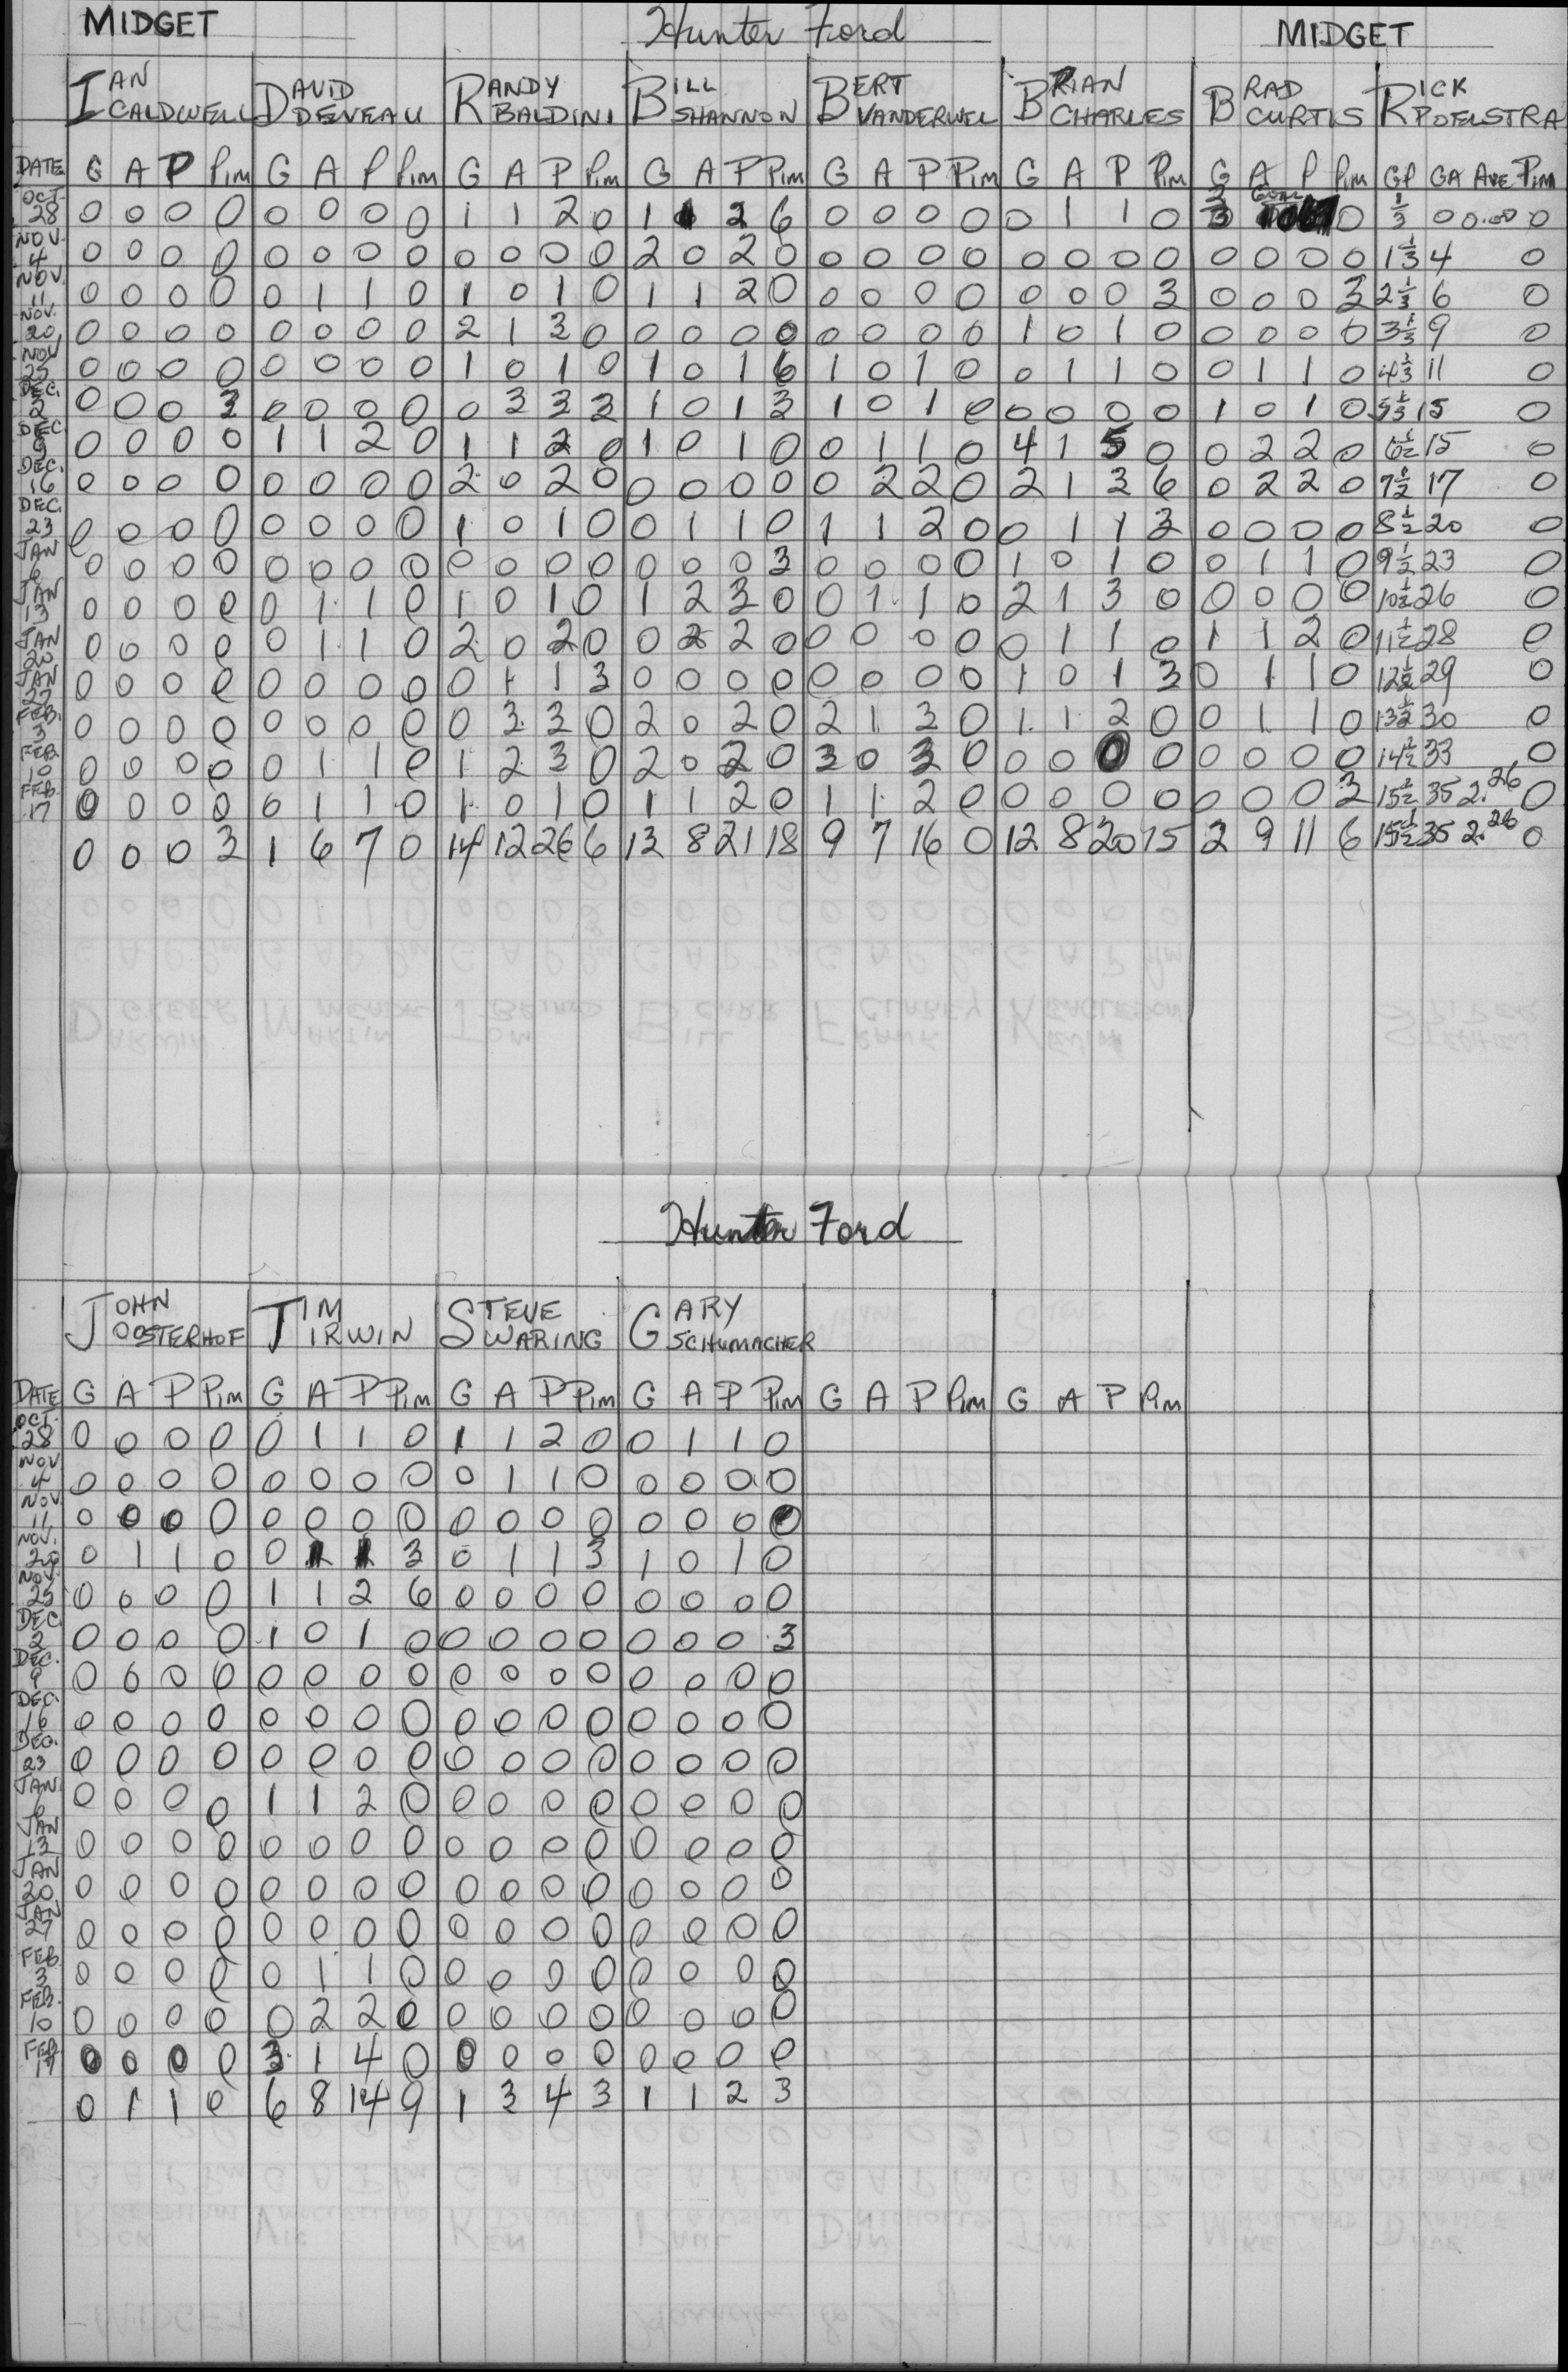 MIDGET Hunter Ford MIDGET
IAN CALDWELL DAVID DEVEAU RANDY BALDINI BILL SHANNON BERT VANDERWEL BRIAN CHARLES BRAD CURTIS RICK POELSTRA
DATE G A P Pim G A P Pim G A P Pim G A P Pim G A P Pim G A P Pim G A P Pim GP GA AVE Pim
OCT. 28 0 0 0 0 0 0 0 0 1 1 2 0 1 1 2 6 0 0 0 0 0 1 1 0 0 1/3 0 0.00 0
NOV. 4 0 0 0 0 0 0 0 0 0 0 0 0 2 0 2 0 0 0 0 0 0 0 0 0 0 0 0 0 1 1/3 4 0
NOV. 11 0 0 0 0 0 1 1 0 1 0 1 0 1 1 2 0 0 0 0 0 0 0 0 3 0 0 0 3 2 1/3 6 0
NOV. 20 0 0 0 0 0 0 0 0 2 1 3 0 0 0 0 0 0 0 0 0 1 0 1 0 0 0 0 0 3 1/3 9 0
NOV 25 0 0 0 0 0 0 0 0 1 0 1 0 1 0 1 6 1 0 1 0 0 1 1 0 0 1 1 0 4 1/3 11 0
DEC. 2 0 0 0 3 0 0 0 0 0 3 3 3 1 0 1 3 1 0 1 0 0 0 0 0 1 0 1 0 5 1/3 15 0
DEC 9 0 0 0 0 1 1 2 0 1 1 2 0 1 0 1 0 0 1 1 0 4 1 5 0 0 2 2 0 6 1/2 15 0
DEC. 16 0 0 0 0 0 0 0 0 2 0 2 0 0 0 0 0 0 2 2 0 2 1 3 6 0 2 2 0 7 1/2 17 0
DEC. 23 0 0 0 0 0 0 0 0 1 0 1 0 0 1 1 0 1 1 2 0 0 1 1 3 0 0 0 0 8 1/2 20 0
JAN 6 0 0 0 0 0 0 0 0 0 0 0 0 0 0 0 3 0 0 0 0 1 0 1 0 0 1 1 0 9 1/2 23 0
JAN 13 0 0 0 0 0 1 1 0 1 0 1 0 1 2 3 0 0 1 1 0 2 1 3 0 0 0 0 0 10 1/2 26 0
JAN 20 0 0 0 0 0 1 1 0 2 0 2 0 0 2 2 0 0 0 0 0 0 1 1 0 1 1 2 0 11 1/2 28 0
JAN 27 0 0 0 0 0 0 0 0 0 1 1 3 0 0 0 0 0 0 0 0 1 0 1 3 0 1 1 0 12 1/2 29 0
FEB. 3 0 0 0 0 0 0 0 0 0 3 3 0 2 0 2 0 2 1 3 0 1 1 2 0 0 1 1 0 13 1/2 30 0
FEB. 10 0 0 0 0 0 1 1 0 1 2 3 0 2 0 2 0 3 0 3 0 0 0 0 0 0 0 0 0 14 1/2 33 0
FEB. 17 0 0 0 0 0 1 1 0 1 0 1 0 1 1 2 0 1 1 2 0 0 0 0 0 0 0 0 3 15 1/2 35 2.26 0
0 0 0 3 1 6 7 0 14 12 26 6 13 8 21 18 9 7 16 0 12 8 20 15 2 9 11 6 15 1/2 35 2.26 0
Hunter Ford
JOHN OOSTERHOF TIM IRWIN STEVE WARING GARY SCHUMACHER
DATE G A P Pim G A P Pim G A P Pim G A P Pim G A P Pim G A P Pim
OCT. 28 0 0 0 0 0 1 1 0 1 1 2 0 0 1 1 0
NOV 4 0 0 0 0 0 0 0 0 0 1 1 0 0 0 0 0
NOV. 11 0 0 0 0 0 0 0 0 0 0 0 0 0 0 0 0
NOV. 20 0 1 1 0 0 1 1 3 0 1 1 3 1 0 1 0
NOV. 25 0 0 0 0 1 1 2 6 0 0 0 0 0 0 0 0
DEC 2 0 0 0 0 1 0 1 0 0 0 0 0 0 0 0 3
DEC. 9 0 0 0 0 0 0 0 0 0 0 0 0 0 0 0 0
DEC. 16 0 0 0 0 0 0 0 0 0 0 0 0 0 0 0 0
DEC. 23 0 0 0 0 0 0 0 0 0 0 0 0 0 0 0 0
JAN. 6 0 0 0 0 1 1 2 0 0 0 0 0 0 0 0 0
JAN 13 0 0 0 0 0 0 0 0 0 0 0 0 0 0 0 0
JAN 20 0 0 0 0 0 0 0 0 0 0 0 0 0 0 0 0
JAN 27 0 0 0 0 0 0 0 0 0 0 0 0 0 0 0 0
FEB 3 0 0 0 0 0 1 1 0 0 0 0 0 0 0 0 0
FEB. 10 0 0 0 0 0 2 2 0 0 0 0 0 0 0 0 0
FEB 17 0 0 0 0 3 1 4 0 0 0 0 0 0 0 0 0
0 1 1 0 6 8 14 9 1 3 4 3 1 1 2 3